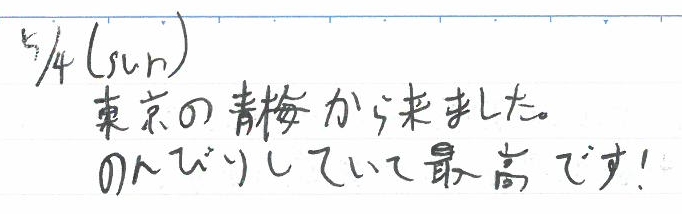 5/4(sun)
東京の青梅から来ました。
のんびりしていて最高です!